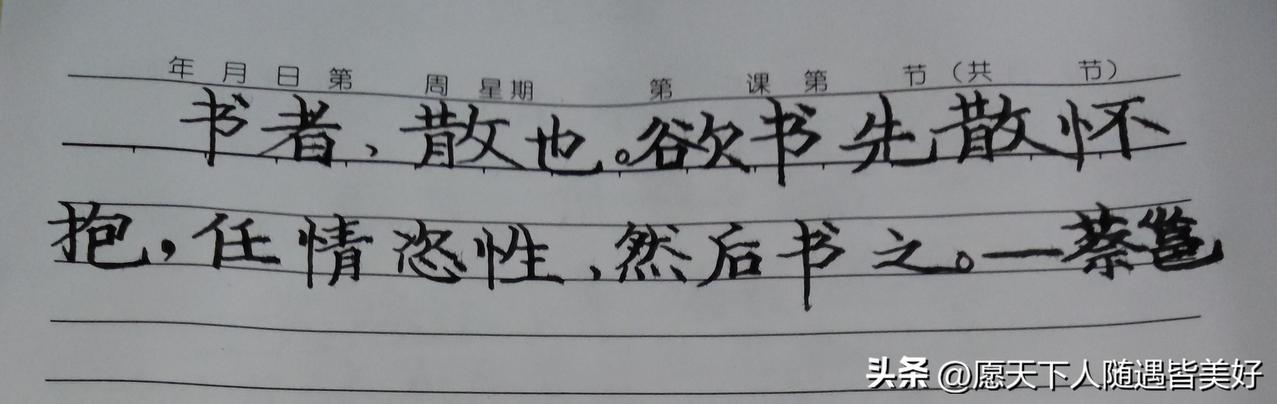 年 月 日 第 周 星期 第 课 第 节（共 节）
书者、散也。欲书先散怀
抱，任情恣性、然后书之。一蔡邕
头条 @愿天下人随遇皆美好